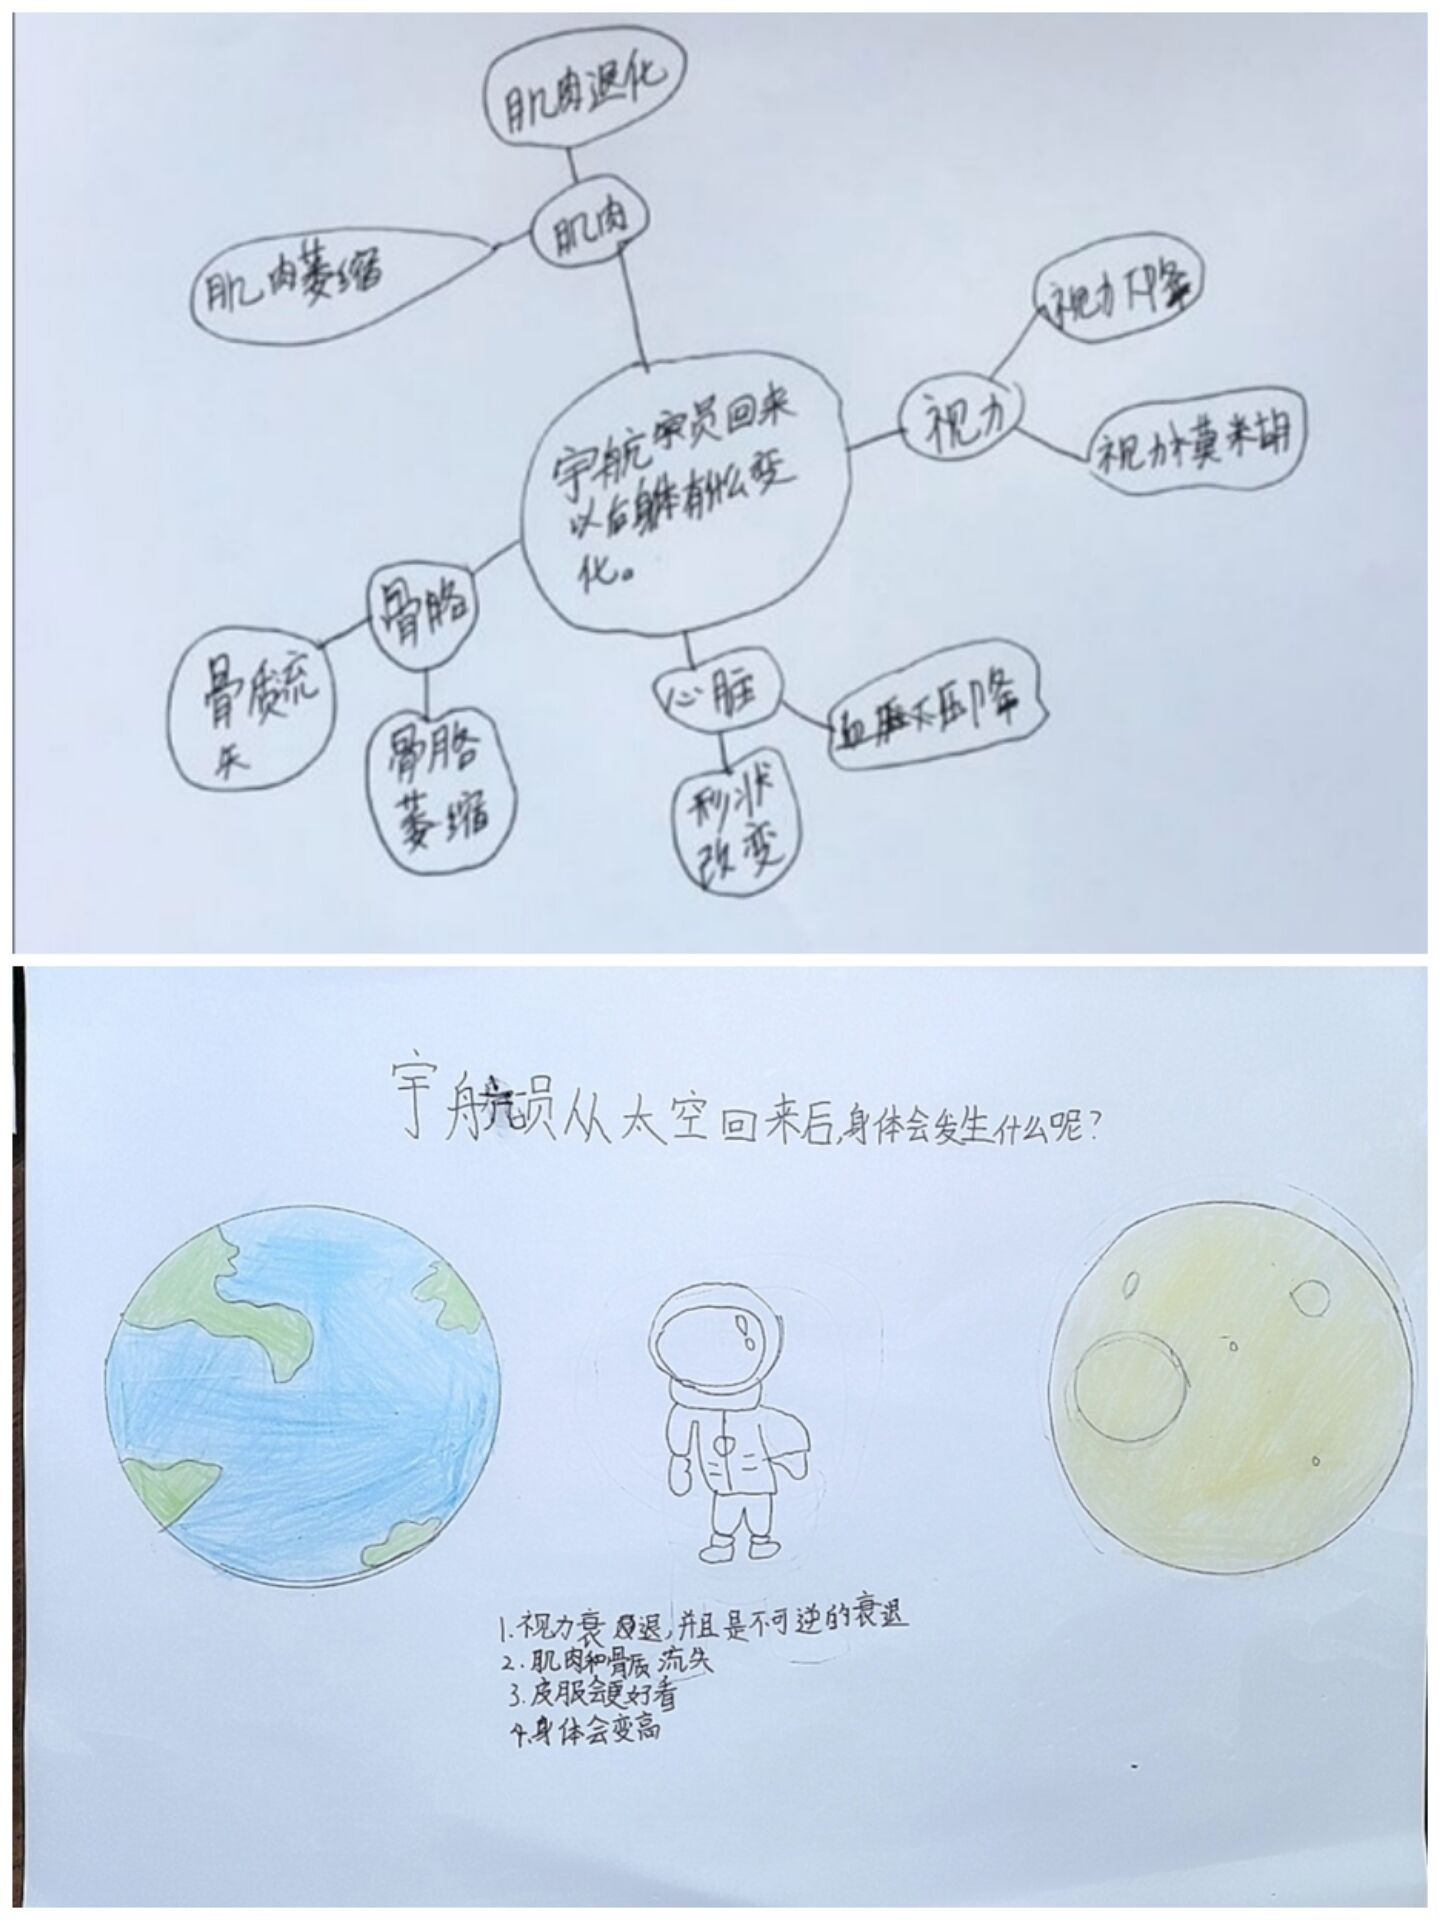 肌肉退化
肌肉
肌肉萎缩
视力下降
视力
视力模糊
宇航员回来
以后身体有什么变
化。
骨胳
骨质流
失
骨胳
萎缩
心脏
血压下降
形状
改变
宇航员从太空回来后,身体会发生什么呢?
1.视力衰退,并且是不可逆的衰退
2.肌肉和骨质流失
3.皮服会更好看
4.身体会变高